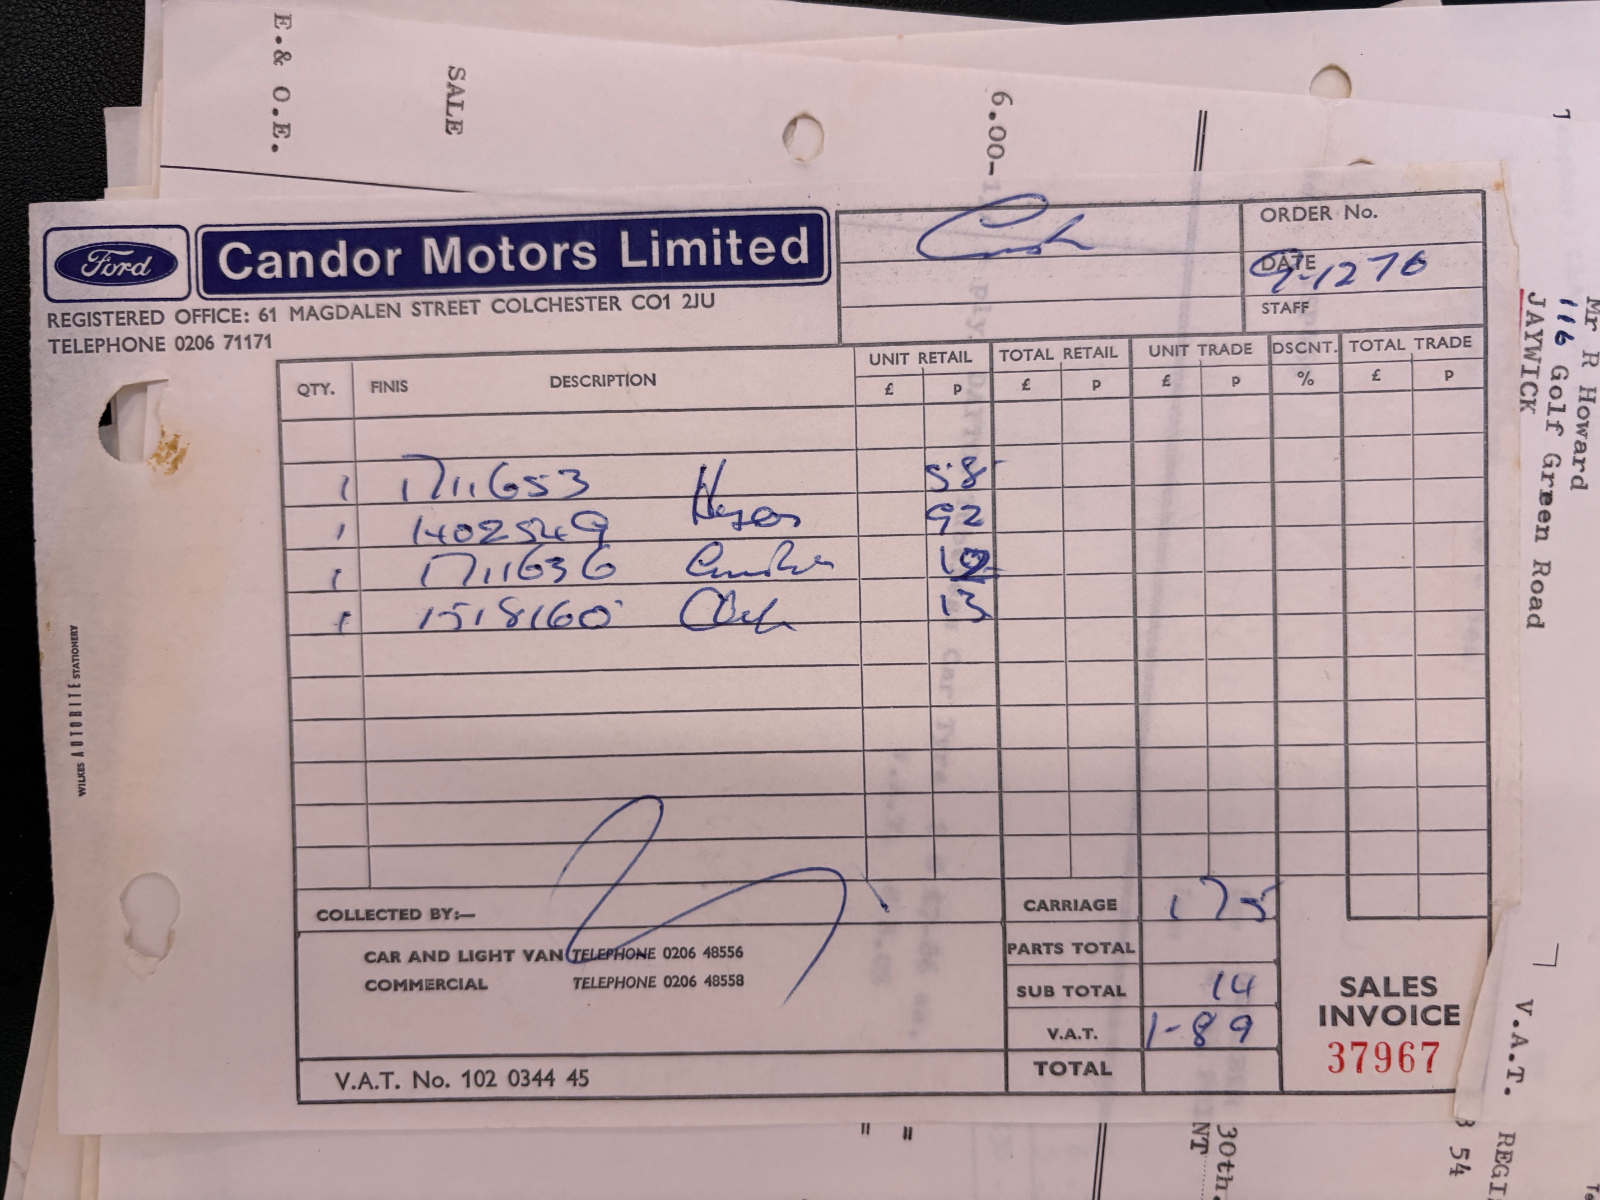 E.& O.E.
SALE
6.00-
Ford
Candor Motors Limited
REGISTERED OFFICE: 61 MAGDALEN STREET COLCHESTER CO1 2JU
TELEPHONE 0206 71171
Cash
ORDER No.
DATE 9-12 76
STAFF
QTY. FINIS DESCRIPTION UNIT RETAIL £ p TOTAL RETAIL £ p UNIT TRADE £ p DSCNT. % TOTAL TRADE £ p
1 1711653 58
1 1402549 92
1 1711636 12
1 1518160 13
COLLECTED BY:—
CAR AND LIGHT VAN TELEPHONE 0206 48556
COMMERCIAL TELEPHONE 0206 48558
V.A.T. No. 102 0344 45
CARRIAGE 175
PARTS TOTAL
SUB TOTAL 14
V.A.T. 1-89
TOTAL
SALES
INVOICE
37967
WILKES AUTOBITE STATIONERY
Mr R Howard
116 Golf Green Road
JAYWICK
V.A.T. REGI
54
30th.
NT